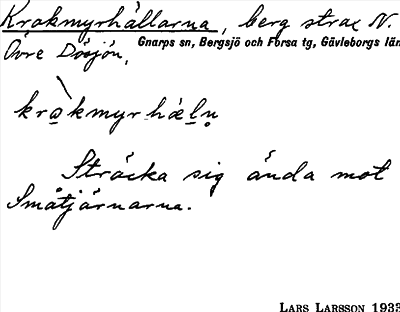 Krokmyrhällarna, berg strax N.
Övre Dåsjön,
Gnarps sn, Bergsjö och Forsa tg, Gävleborgs län
Sträcka sig ända mot
Småtjärnarna.
LARS LARSSON 1933